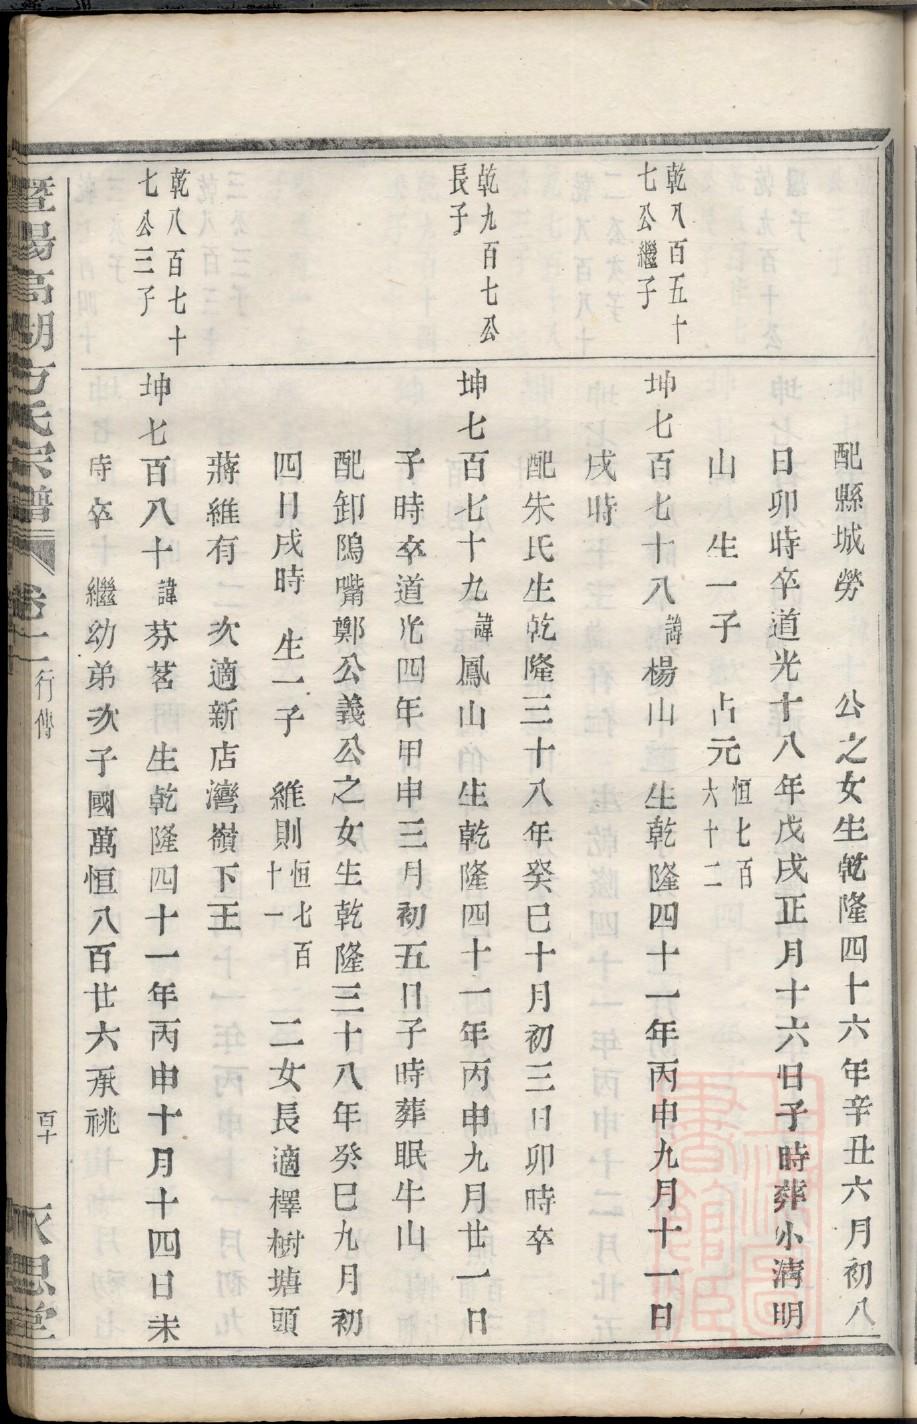 配縣城勞　公之女生乾隆四十六年辛丑六月初八
日卯時卒道光十八年戊戌正月十六日子時葬小溝明
山　生一子　占元恒七百六十二
乾八百五十七公繼子
坤七百七十八諱楊山　生乾隆四十一年丙申九月十一日
戌時
配朱氏生乾隆三十八年癸巳十月初三日卯時卒
乾九百七公長子
坤七百七十九諱鳳山　生乾隆四十一年丙申九月廿一日
子時卒道光四年甲申三月初五日子時葬眠牛山
配卸隖嘴鄭公義公之女生乾隆三十八年癸巳九月初
四日戌時　生一子　維則恒七百十一　二女長適檡樹塘頭
蔣維有　次適新店灣嶺下王
乾八百七十七公三子
坤七百八十諱芬茗　生乾隆四十一年丙申十月十四日未
時卒　繼幼弟次子國萬恒八百廿六承祧
暨陽高湖方氏宗譜
行傳
百十
永思堂